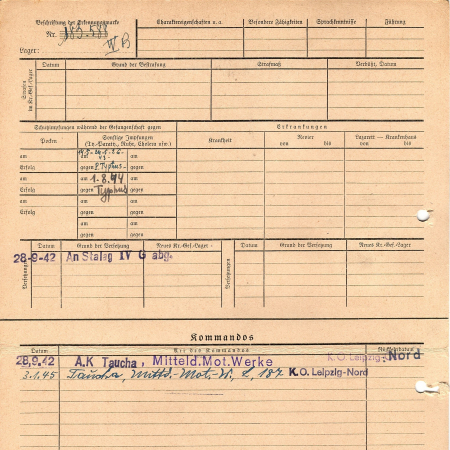 Beschriftung der Erkennungsmarke
Nr. 185.588
IV B
Lager:
Charaktereigenschaften u. a.
Besondere Fähigkeiten
Sprachkenntnisse
Führung
Strafen im Kr.-Gef.-Lager
Datum
Grund der Bestrafung
Strafmaß
Verbüßt, Datum
Schutzimpfungen während der Gefangenschaft gegen
Erkrankungen
Pocken
Sonstige Impfungen
(Ty.-Paraty., Ruhr, Cholera usw.)
Krankheit
Revier
von bis
Lazarett — Krankenhaus
von bis
am
am
Erfolg
gegen Typhus
am
am 1.8.44
Erfolg
gegen Typhus
am
am
Erfolg
gegen
am
gegen
am
gegen
Versetzungen
Datum
Grund der Versetzung
Neues Kr.-Gef.-Lager
Versetzungen
Datum
Grund der Versetzung
Neues Kr.-Gef.-Lager
28-9-42 An Stalag IV G abg.
Kommandos
Datum
Art des Kommandos
Rückkehrdatum
28.9.42 A.K Taucha, Mitteld.Mot.Werke K.O. Leipzig-Nord
3.1.45 Taucha, Mitteld.-Mot.-W. L. 187 K.O. Leipzig-Nord